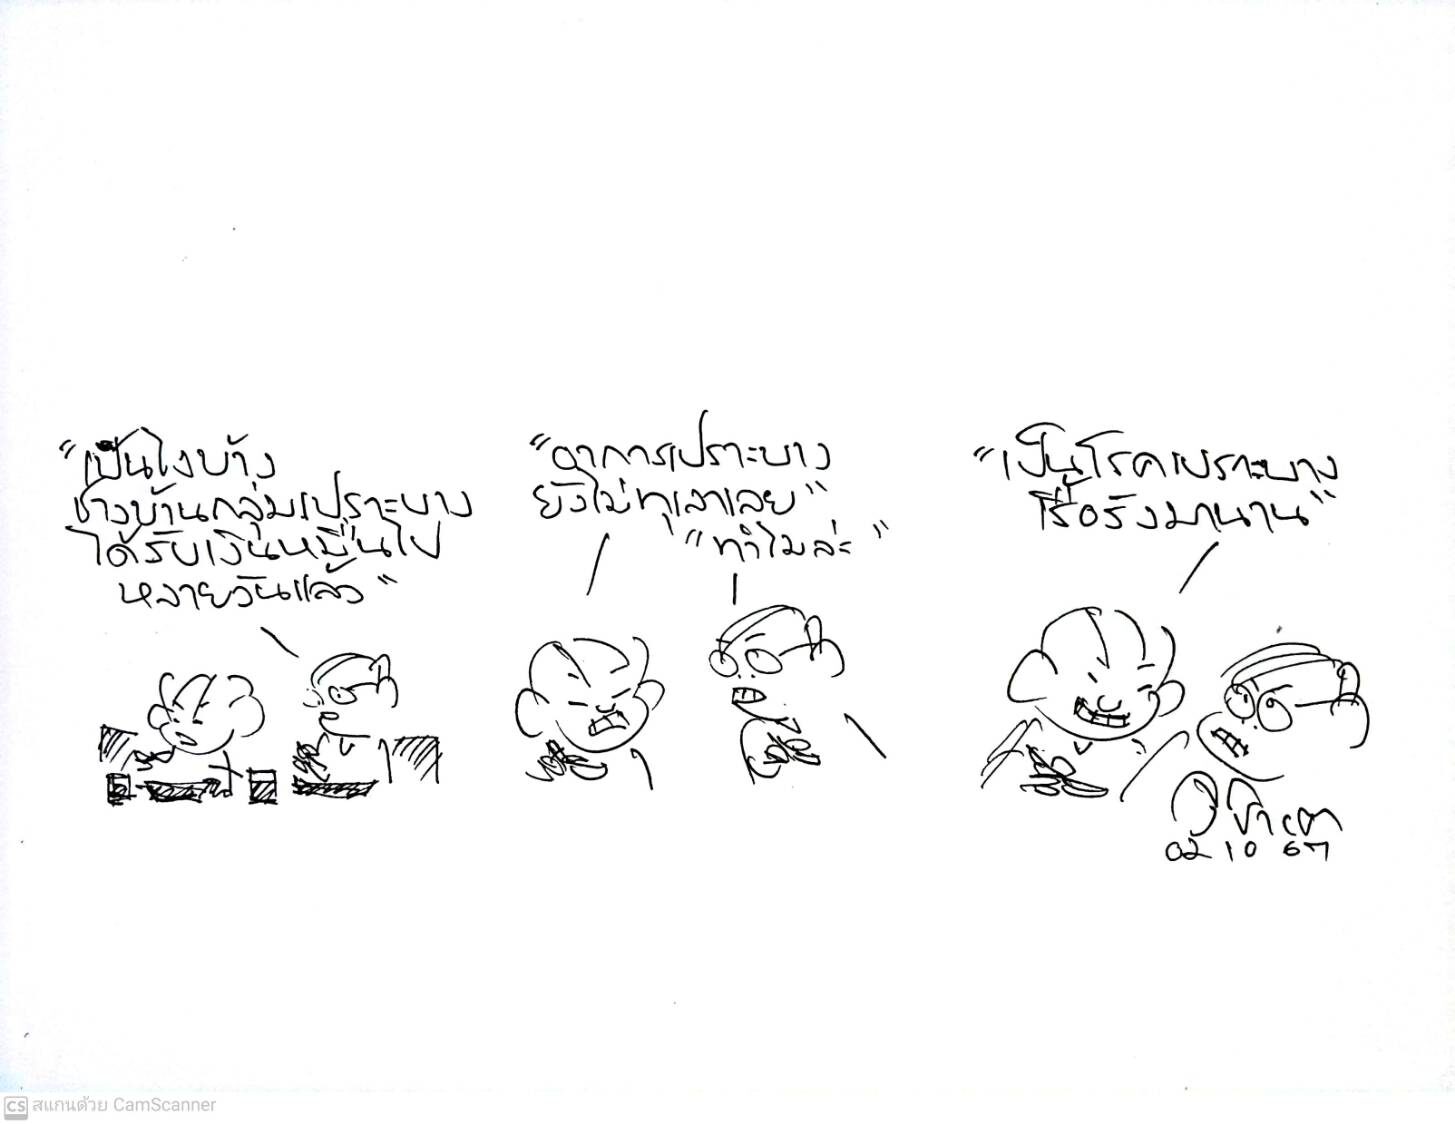 "เป็นไงบ้าง
ชาวบ้านกลุ่มเปราะบาง
ได้รับเงินหมื่นไป
หลายวันแล้ว"
"อาการเปราะบาง
ยังไม่ทุเลาเลย"
"ทำไมล่ะ"
"เป็นโรคเปราะบาง
เรื้อรังมานาน"
02 10 67
CS สแกนด้วย CamScanner